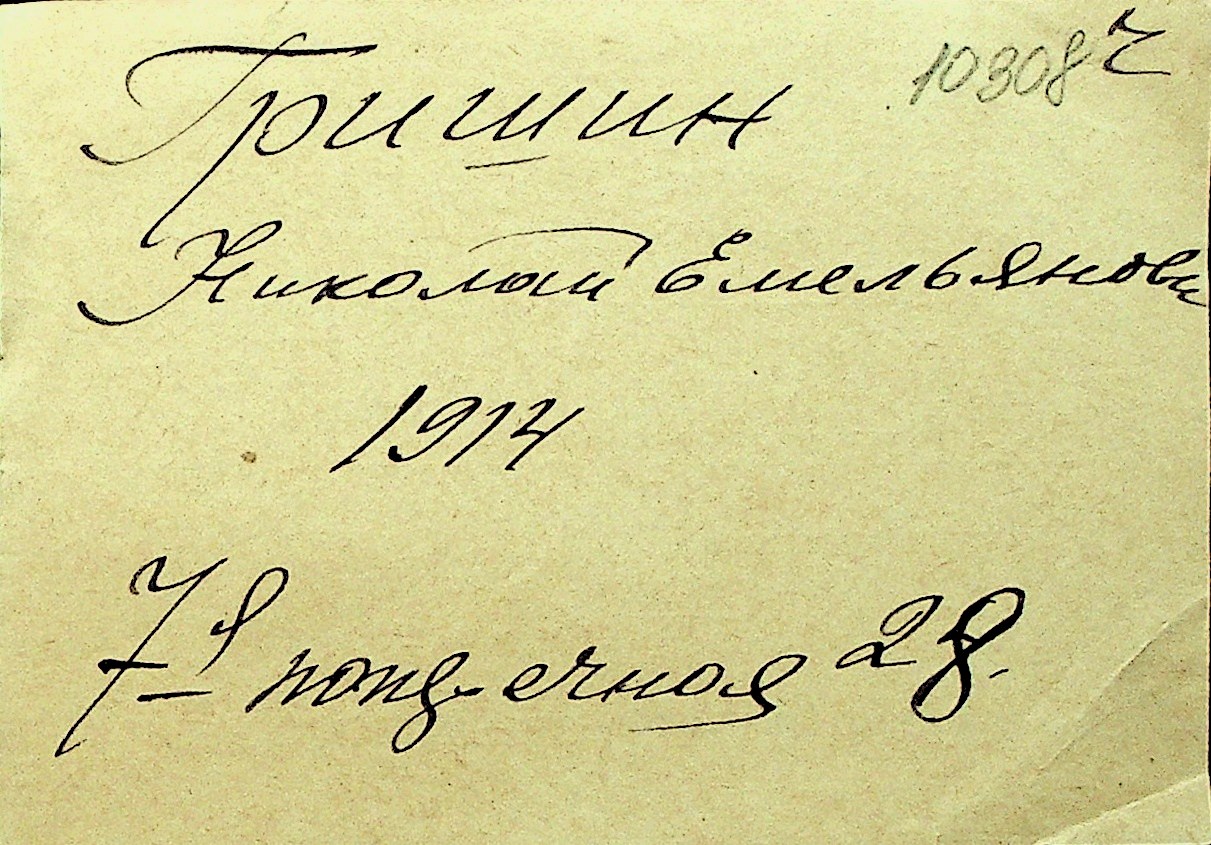 10308 г
Гришин
Николай Емельянови
1914
7я попер-ечная 28.